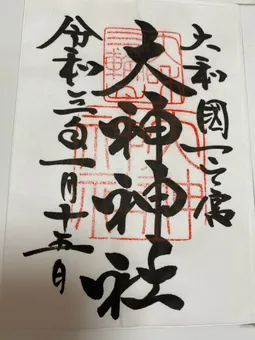 大和國一之宮
大神神社
令和三年一月十五日